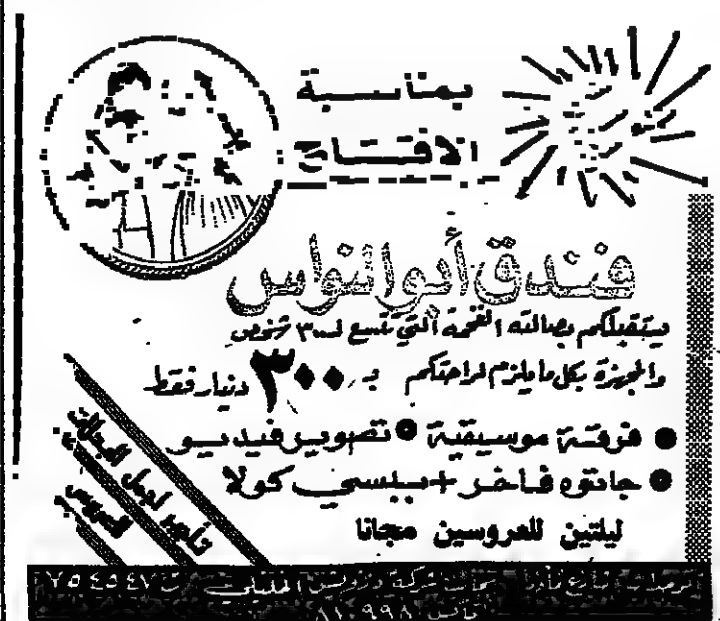 بمناسبة
الافتتاح
فندق أبو النواس
يستقبلكم بصالته الفخمة التي تتسع لـ ٣٠٠ شخص
والمجهزة بكل ما يلزم لراحتكم بـ ٣٠٠ دينار فقط
● فرقة موسيقية ● تصوير فيديو
● جاتوه فاخر + ببسي كولا
ليلتين للعروسين مجانا
تأجير اجمل البدلات
العروس
شارع شركة درويش الخليلي ت ٧٥٤٥٤٧
٨١٠٩٩٨